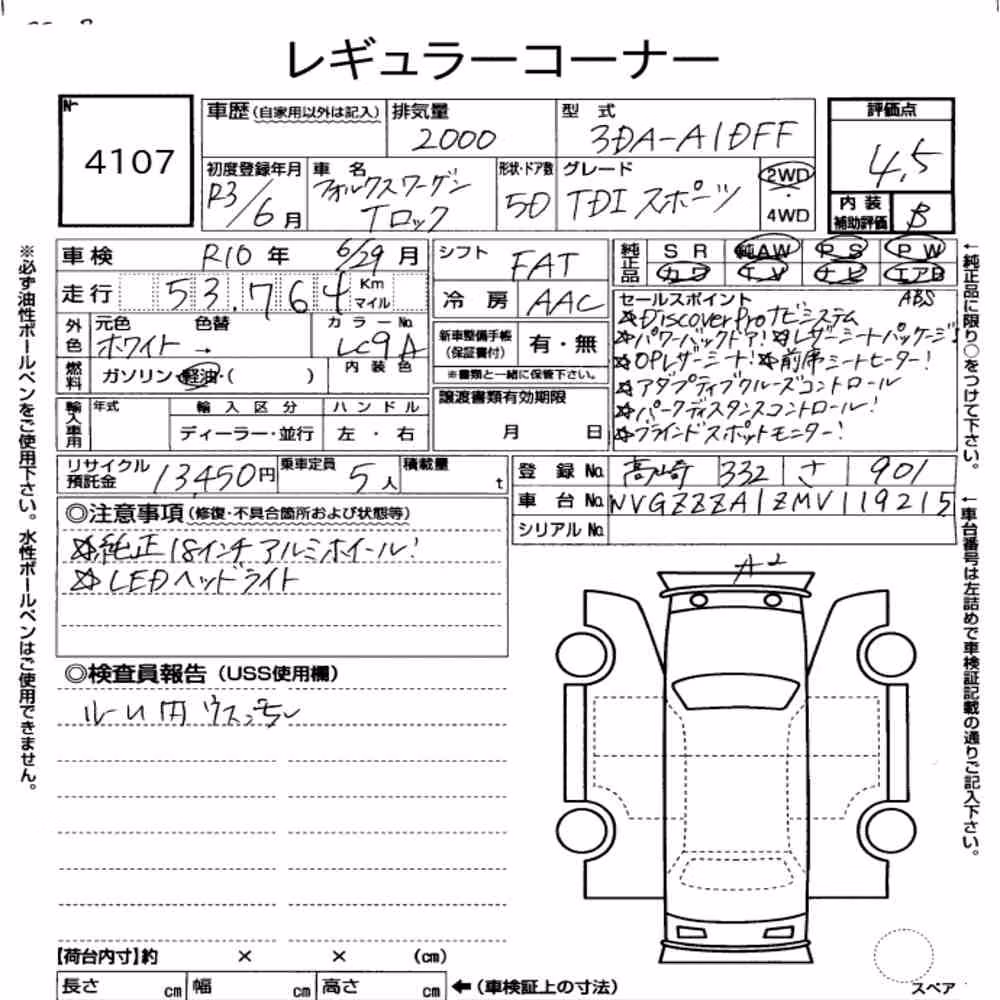 レギュラーコーナー
4107
車歴(自家用以外は記入)
排気量
2000
型 式
3DA-A1DFF
評価点
4.5
初度登録年月
R3/6月
車 名
フォルクスワーゲン
Tロック
形状・ドア数
5D
グレード
TDI スポーツ
2WD
・
4WD
内 装
補助評価
B
車検 R10年 6/29月
走行 53.764 Km マイル
シフト FAT
冷房 AAC
純正品 SR 純AW PS PW
カワ TV ナビ エアB
ABS
外色 元色 色替 カラーNo.
ホワイト → LC9A
内装色
燃料 ガソリン・軽油・( )
新車整備手帳
(保証書付)
有・無
※書類と一緒に保管下さい。
セールスポイント
☆Discover Proナビシステム
☆パワーバックドア!☆レザーシートパッケージ
☆OPレザーシート!☆前席シートヒーター!
☆アダプティブクルーズコントロール
☆パークディスタンスコントロール!
☆ブラインドスポットモニター!
輸入車用 年式 輸入区分 ハンドル
ディーラー・並行 左・右
譲渡書類有効期限
月 日
リサイクル
預託金
13450円
乗車定員 5人
積載量 t
登録No. 高崎 332 さ 901
車台No. WVGZZZA1ZMV119215
シリアルNo.
◎注意事項(修復・不具合箇所および状態等)
☆純正18インチアルミホイール!
☆LEDヘッドライト
A2
◎検査員報告(USS使用欄)
【荷台内寸】約 × × (cm)
長さ cm 幅 cm 高さ cm ←(車検証上の寸法)
スペア
※必ず油性ボールペンをご使用下さい。水性ボールペンはご使用できません。
←純正品に限り○をつけて下さい。
←車台番号は左詰めで車検証記載の通りご記入下さい。